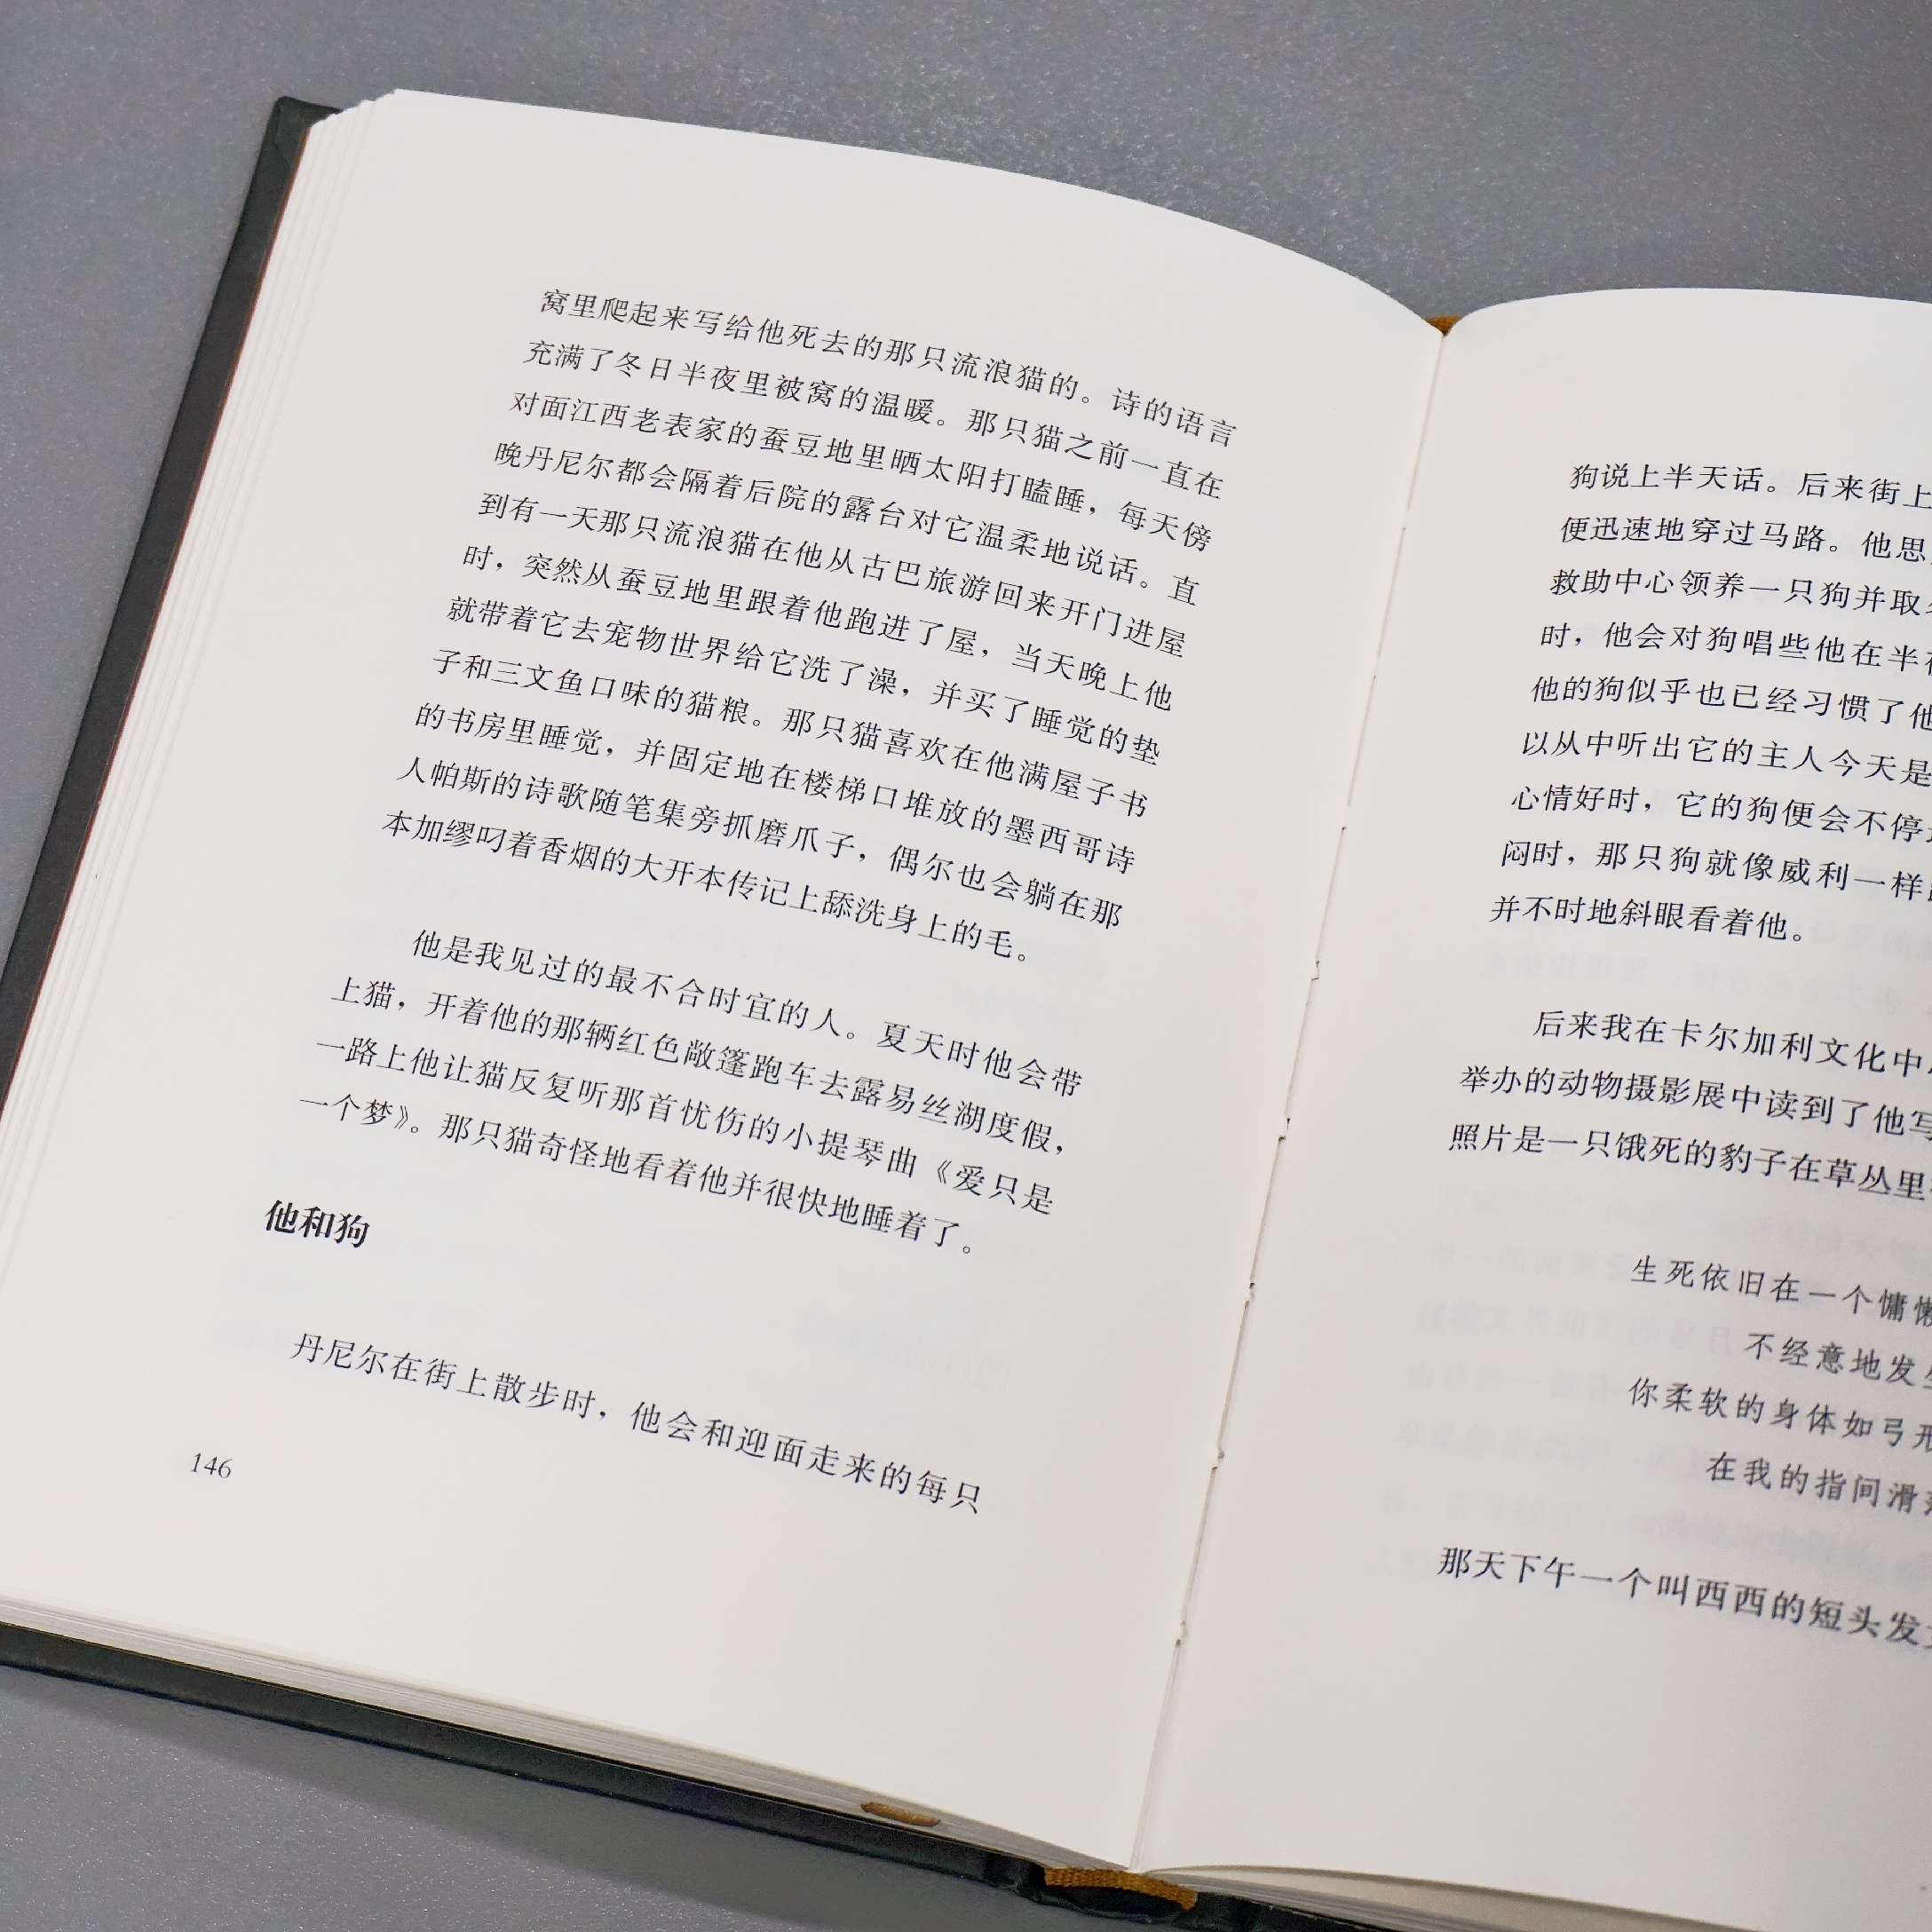 窝里爬起来写给他死去的那只流浪猫的。诗的语言
充满了冬日半夜里被窝的温暖。那只猫之前一直在
对面江西老表家的蚕豆地里晒太阳打瞌睡，每天傍
晚丹尼尔都会隔着后院的露台对它温柔地说话。直
到有一天那只流浪猫在他从古巴旅游回来开门进屋
时，突然从蚕豆地里跟着他跑进了屋，当天晚上他
就带着它去宠物世界给它洗了澡，并买了睡觉的垫
子和三文鱼口味的猫粮。那只猫喜欢在他满屋子书
的书房里睡觉，并固定地在楼梯口堆放的墨西哥诗
人帕斯的诗歌随笔集旁抓磨爪子，偶尔也会躺在那
本加缪叼着香烟的大开本传记上舔洗身上的毛。
他是我见过的最不合时宜的人。夏天时他会带
上猫，开着他的那辆红色敞篷跑车去露易丝湖度假，
一路上他让猫反复听那首忧伤的小提琴曲《爱只是
一个梦》。那只猫奇怪地看着他并很快地睡着了。
他和狗
丹尼尔在街上散步时，他会和迎面走来的每只
146
狗说上半天话。后来街上
便迅速地穿过马路。他思
救助中心领养一只狗并取
时，他会对狗唱些他在半
他的狗似乎也已经习惯了他
以从中听出它的主人今天是
心情好时，它的狗便会不停
闷时，那只狗就像威利一样
并不时地斜眼看着他。
后来我在卡尔加利文化中
举办的动物摄影展中读到了他写
照片是一只饿死的豹子在草丛里
生死依旧在一个慵懒
不经意地发生
你柔软的身体如弓形
在我的指间滑
那天下午一个叫西西的短头发